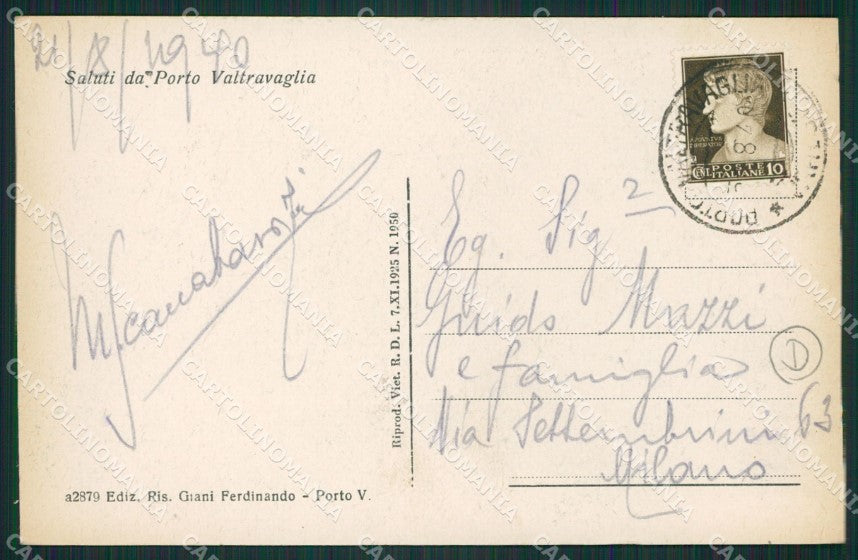 21/8/1940
Saluti da Porto Valtravaglia
Eg. Sig
Guido Mazzi
e famiglia
Via Settembrini 63
Milano
D
Riprod. Viet. R. D. L. 7.XI.1925 N. 1950
a2879 Ediz. Ris. Giani Ferdinando - Porto V.
POSTE
ITALIANE
CENT. 10
CARTOLINOMANIA